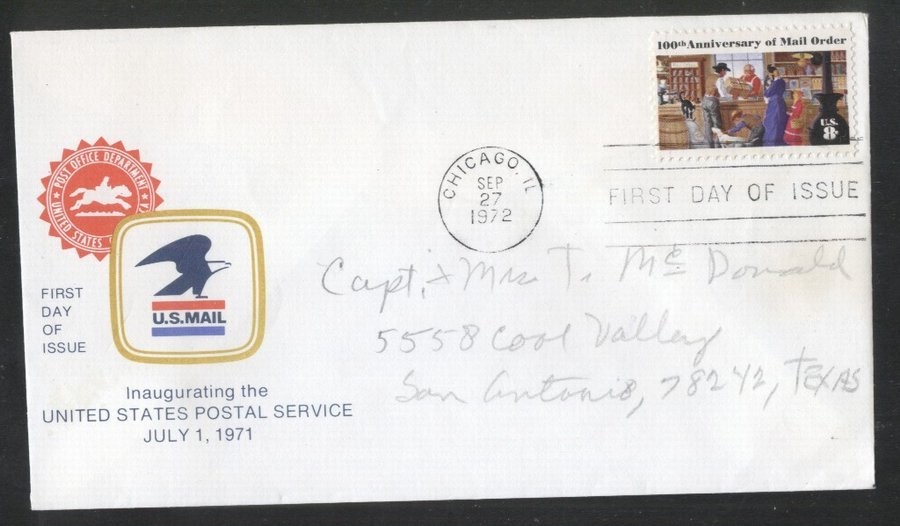 100th Anniversary of Mail Order
U.S.
8¢
CHICAGO, IL
SEP
27
1972
FIRST DAY OF ISSUE
POST OFFICE DEPARTMENT
UNITED STATES
U.S.MAIL
FIRST
DAY
OF
ISSUE
Inaugurating the
UNITED STATES POSTAL SERVICE
JULY 1, 1971
Capt. & Mrs. T. McDonald
5558 Cool Valley
San Antonio, 78242, TEXAS